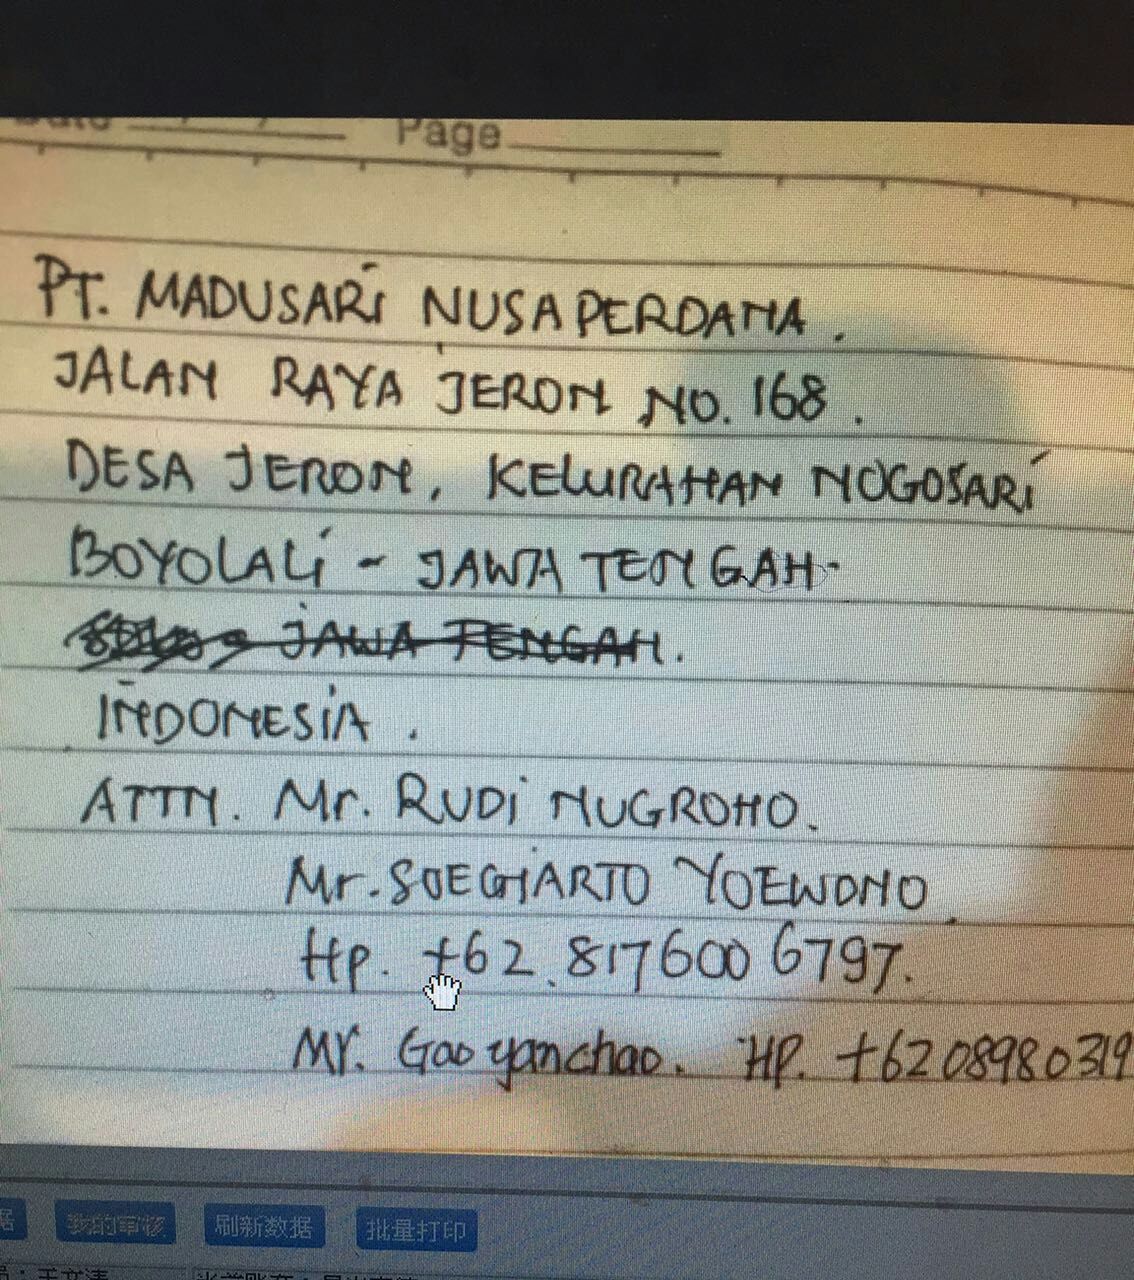 Date Page
PT. MADUSARI NUSAPERDANA.
JALAN RAYA JERON NO. 168.
DESA JERON, KELURAHAN NOGOSARI
BOYOLALI - JAWA TENGAH.
JAWA TENGAH.
INDONESIA.
ATTN. Mr. RUDI NUGROHO.
Mr. SOEGIARTO YOEWONO
HP. +62.817600 6797.
Mr. Gao yanchao. HP. +62 08980319
据 我的审核 刷新数据 批量打印